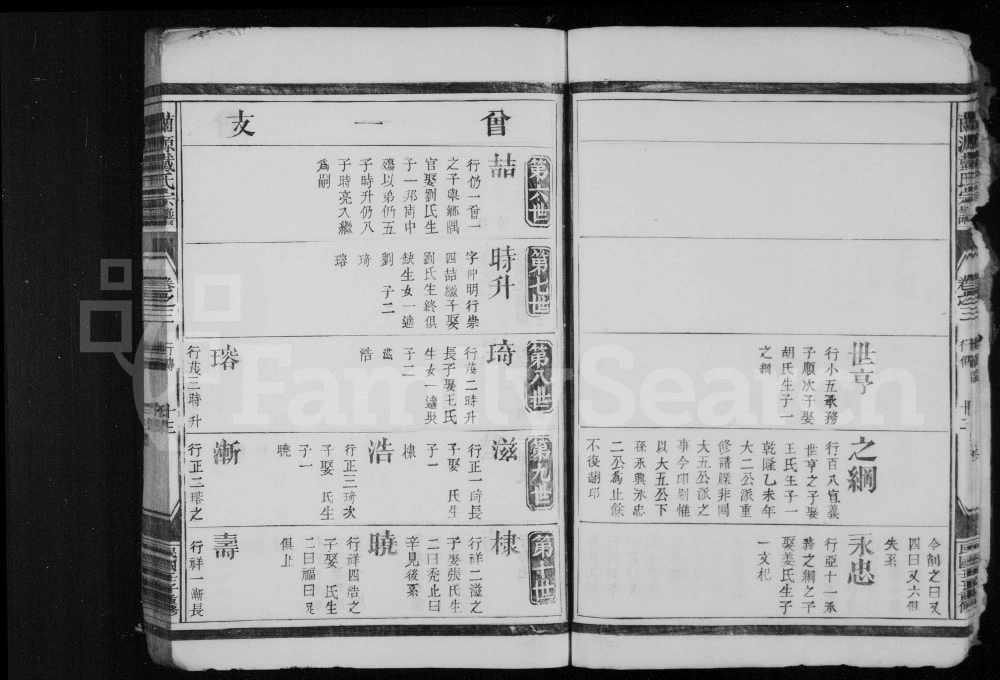 世亨
行小五承務
子順次子娶
胡氏生子一
之綱
之綱
行百八宣義
世亨之子娶
王氏生子一
乾隆乙未年
大二公派重
修譜牒非關
大五公派之
事今印刷惟
以大五公下
孫永興永忠
二公為止餘
不復翻印
永忠
行亞十一承
務之綱之子
娶姜氏生子
一文杞
失系
曾一支
第六世
喆
行仍一曾一
之子與鄉隅
官娶劉氏生
子一邦
殤以弟侕五
子時升仍八
子時亮入繼
為嗣
第七世
時升
字仲明行崇
四喆繼子娶
劉氏生終俱
缺生女一適
劉 子二
琦
瑢
第八世
琦
行茂二時升
長子娶王氏
生女一適吳
子二
滋
浩
瑢
行茂三時升
第九世
滋
行正一琦長
子娶 氏生
子一
棣
浩
行正二琦次
子娶 氏生
子一
曉
漸
行正三瑢之
第十世
棣
行祥二滋之
子娶張氏生
二曰禿止曰
辛見後系
曉
行祥四浩之
子娶 氏生
二曰福曰足
俱止
壽
行祥一漸長
蘭源戴氏宗譜
卷之三
行傳
FamilySearch